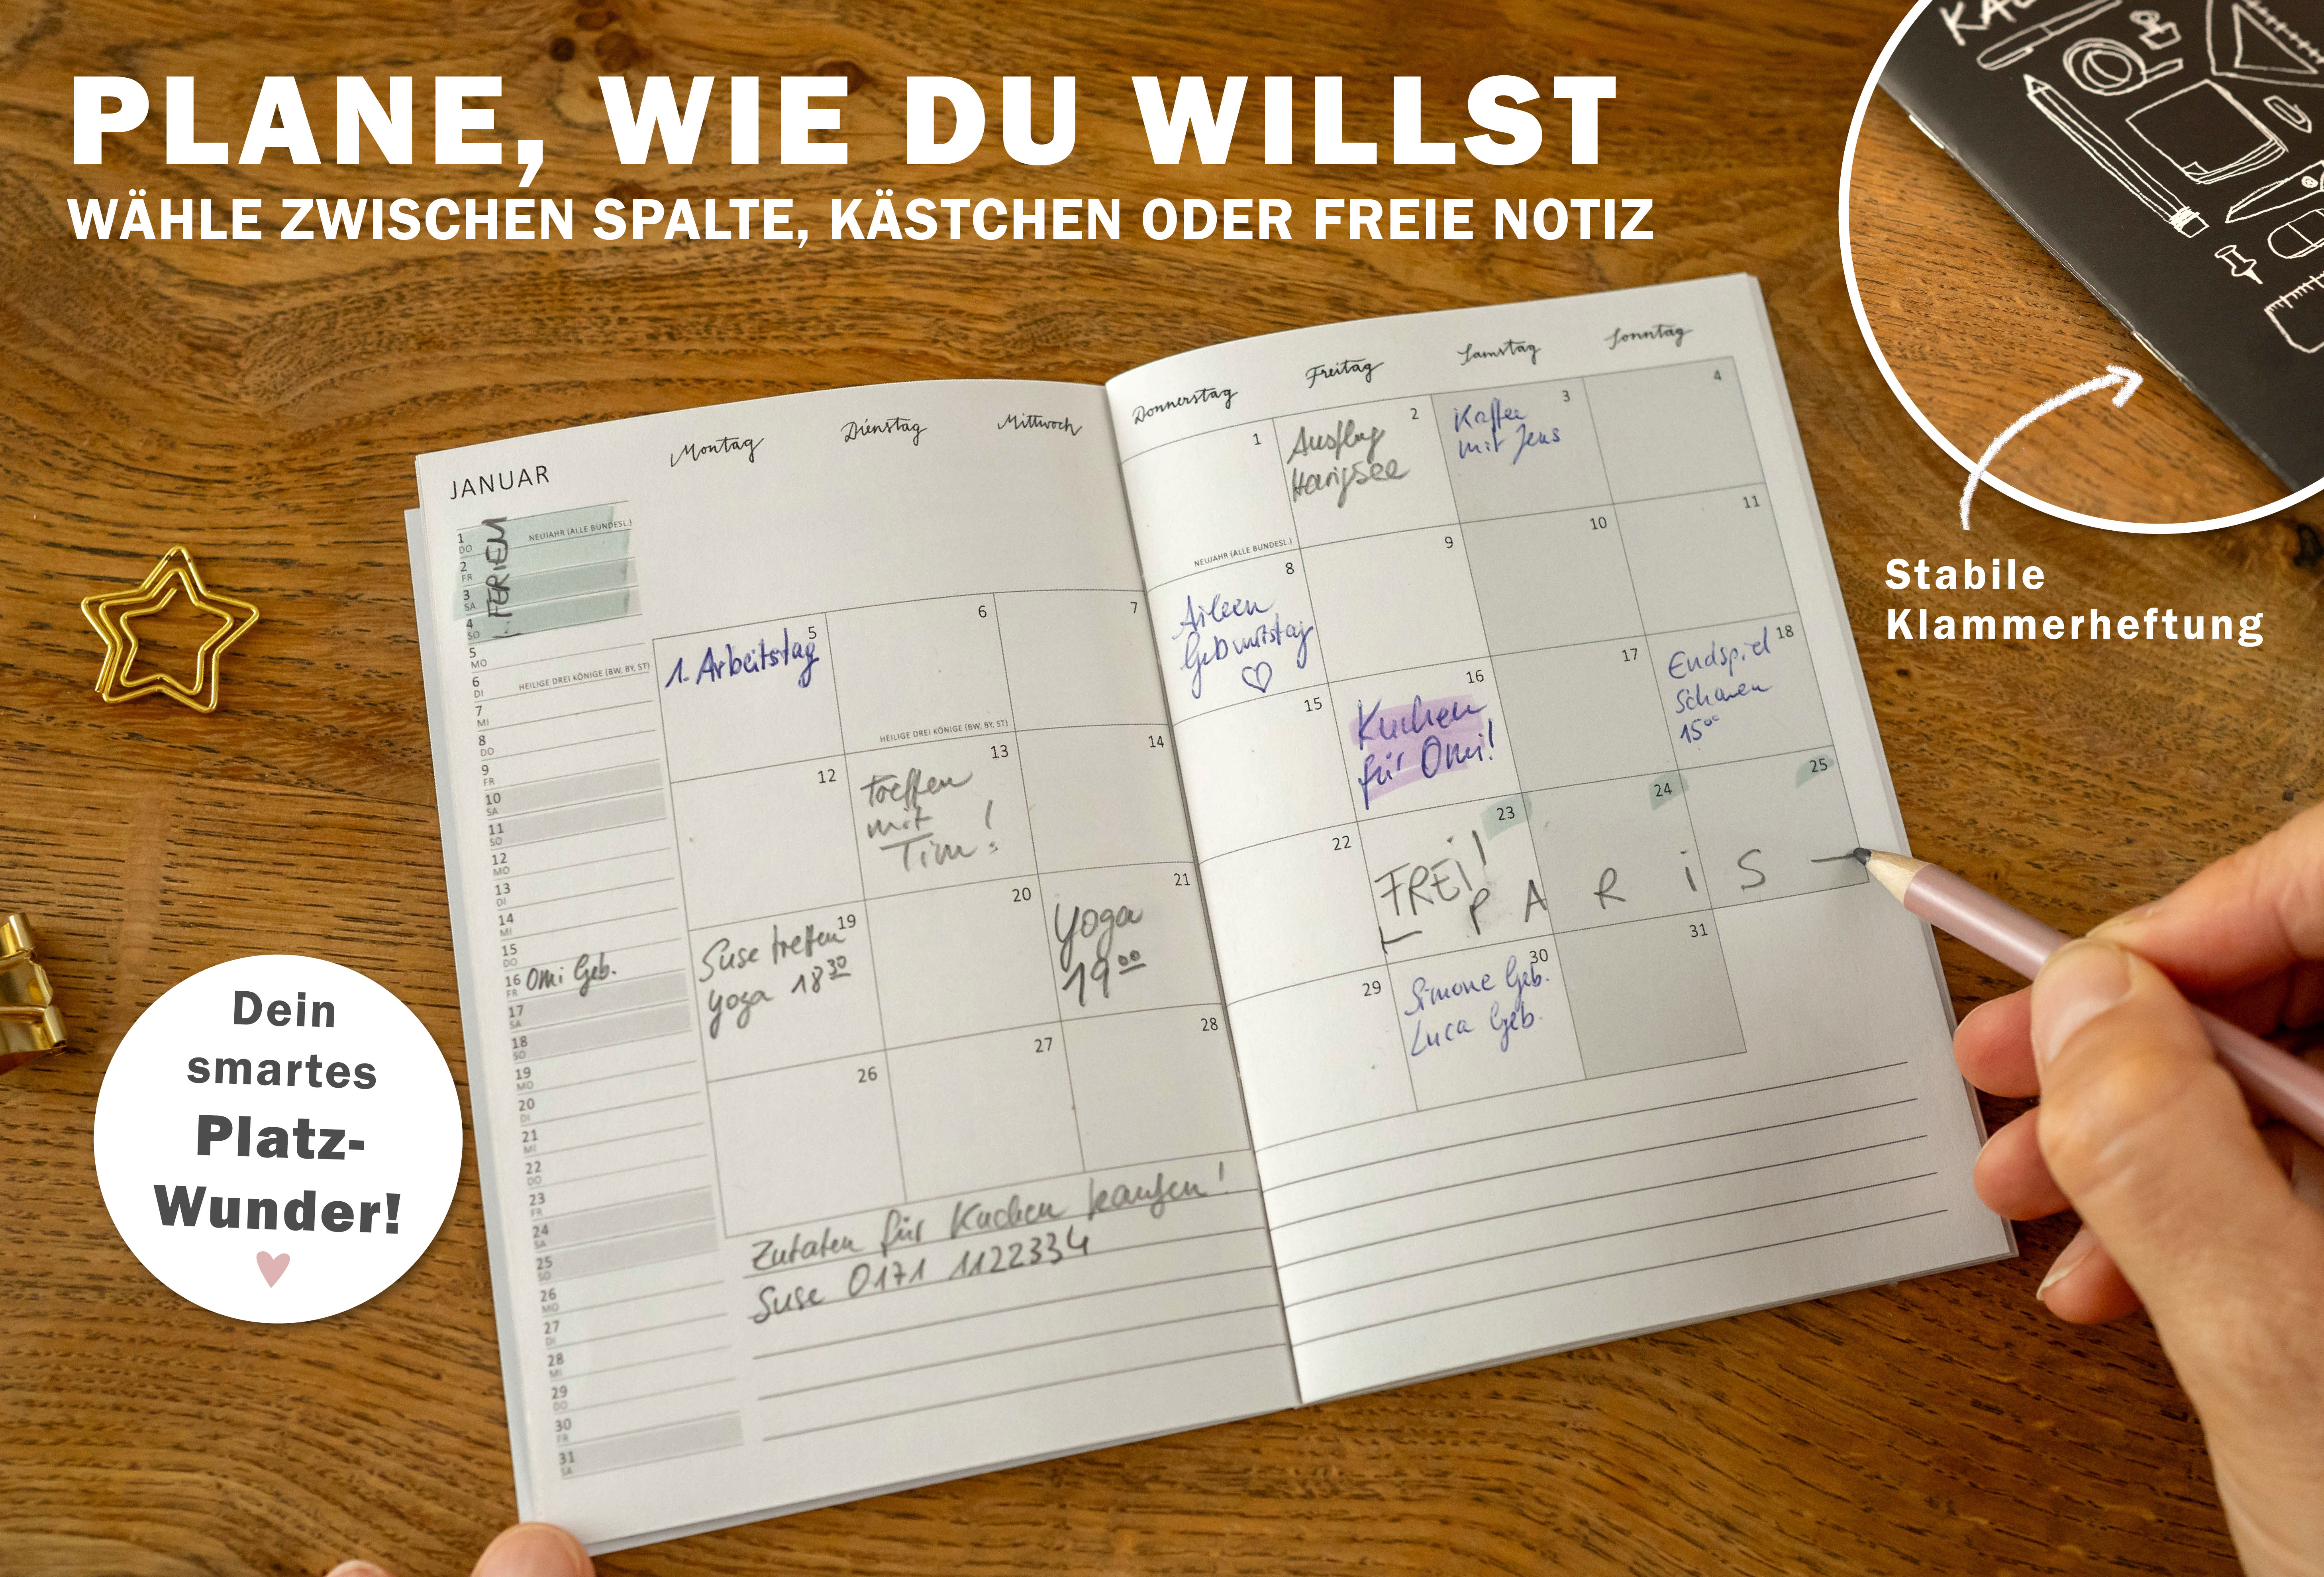 PLANE, WIE DU WILLST
WÄHLE ZWISCHEN SPALTE, KÄSTCHEN ODER FREIE NOTIZ
Stabile
Klammerheftung
Dein
smartes
Platz-
Wunder!
JANUAR
Montag Dienstag Mittwoch Donnerstag Freitag Samstag Sonntag
FERIEN
1 DO NEUJAHR (ALLE BUNDESL.)
2 FR
3 SA
4 SO
5 MO
6 DI HEILIGE DREI KÖNIGE (BW, BY, ST)
7 MI
8 DO
9 FR
10 SA
11 SO
12 MO
13 DI
14 MI
15 DO
16 FR Omi Geb.
17 SA
18 SO
19 MO
20 DI
21 MI
22 DO
23 FR
24 SA
25 SO
26 MO
27 DI
28 MI
29 DO
30 FR
31 SA
1
NEUJAHR (ALLE BUNDESL.)
2
Ausflug
3
Kaffee
mit Jens
4
5
1. Arbeitstag
6
HEILIGE DREI KÖNIGE (BW, BY, ST)
7
8
Aileen
Geburtstag
9
10
11
12
13
Treffen
mit
Tim!
14
15
16
Kuchen
für Omi!
17
18
Endspiel
15⁰⁰
19
Suse treffen
Yoga 18³⁰
20
21
Yoga
19⁰⁰
22
23
FREI!
24
25
PARiS
26
27
28
29
30
Simone Geb.
Luca Geb.
31
Zutaten für Kuchen kaufen!
Suse 0171 1122334